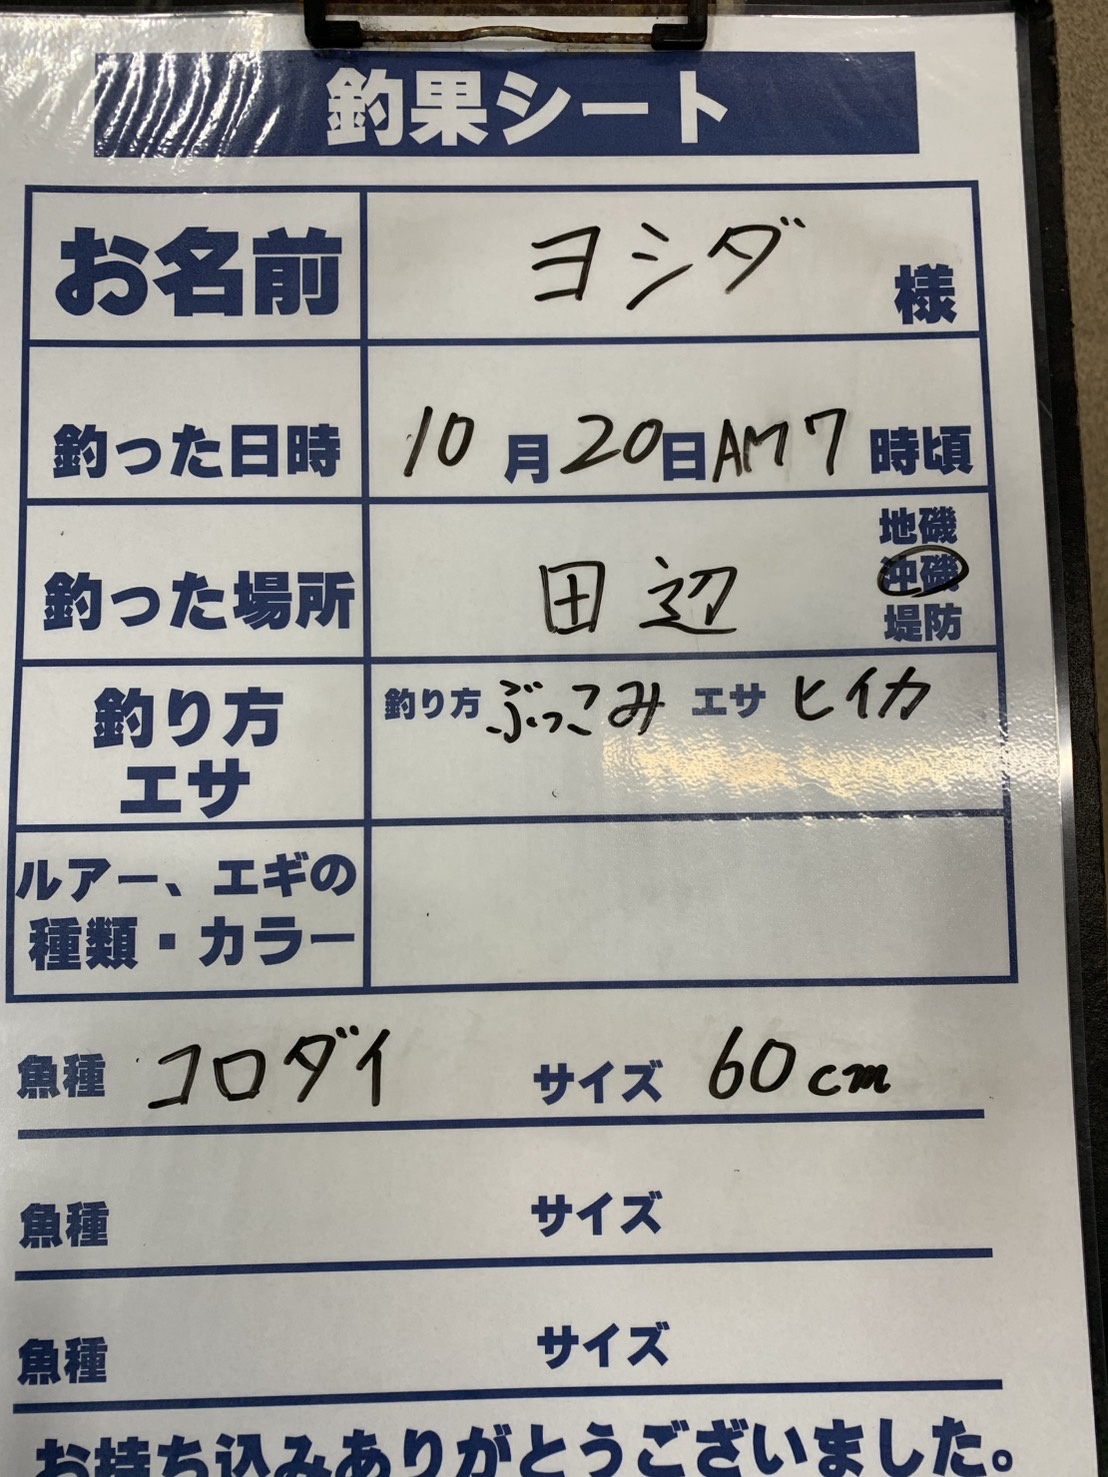 釣果シート
お名前 ヨシダ 様
釣った日時 10月20日AM7時頃
地磯
釣った場所 田辺 沖磯
堤防
釣り方 エサ 釣り方 ぶっこみ エサ ヒイカ
ルアー、エギの
種類・カラー
魚種 コロダイ サイズ 60cm
魚種 サイズ
魚種 サイズ
お持ち込みありがとうございました。